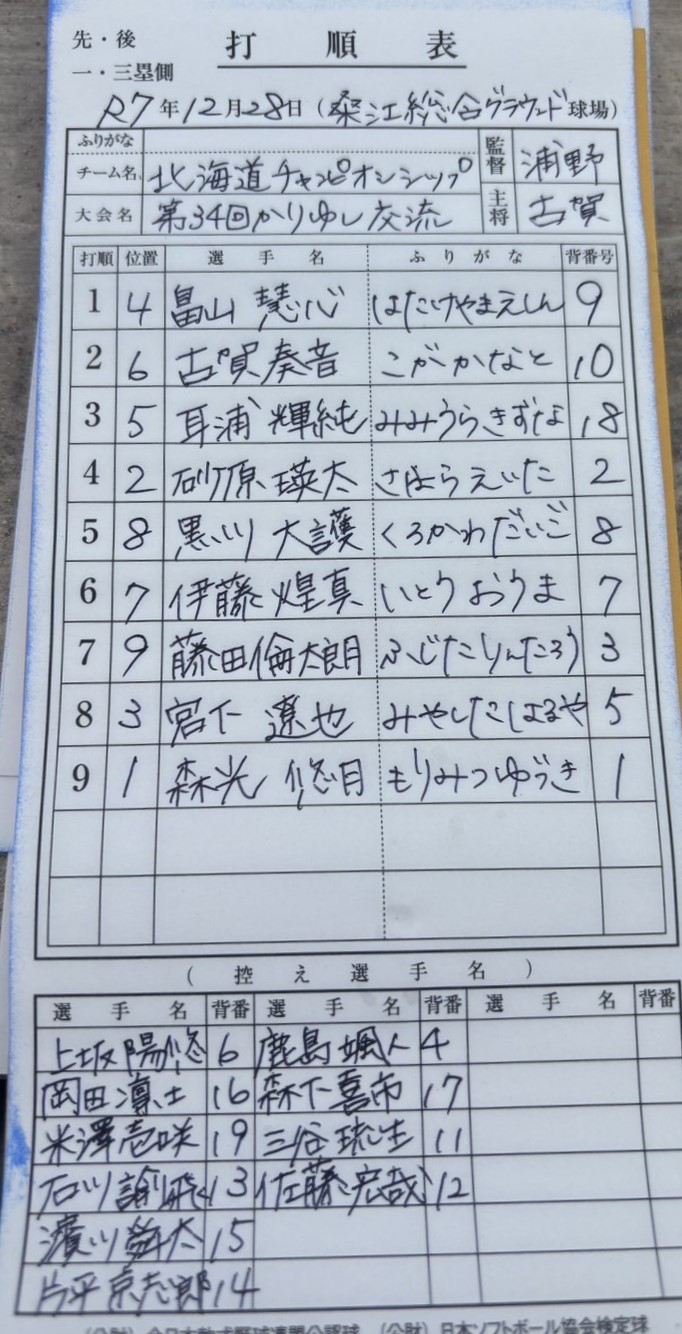 先・後 打順表
一・三塁側
R7年12月28日(桑江総合グラウンド球場)
ふりがな 監督 浦野
チーム名 北海道チャンピオンシップ
大会名 第34回かりゆし交流 主将 古賀
打順 位置 選手名 ふりがな 背番号
1 4 畠山 慧心 はたけやまえしん 9
2 6 古賀奏音 こがかなと 10
3 5 耳浦 輝純 みみうらきずな 18
4 2 砂原 瑛太 さはらえいた 2
5 8 黒川 大護 くろかわだいご 8
6 7 伊藤 煌真 いとうおうま 7
7 9 藤田倫太朗 ふじたりんたろう 3
8 3 宮下 遼也 みやしたはるや 5
9 1 森光 悠月 もりみつゆづき 1
(控え選手名)
選手名 背番 選手名 背番 選手名 背番
上坂陽悠 6 鹿島颯人 4
岡田凛士 16 森下喜市 17
米澤壱咲 19 三谷琉生 11
石川諭飛 13 佐藤宏哉 12
濱川 太 15
片平京志郎 14
(公財)全日本軟式野球連盟公認球 (公財)日本ソフトボール協会検定球